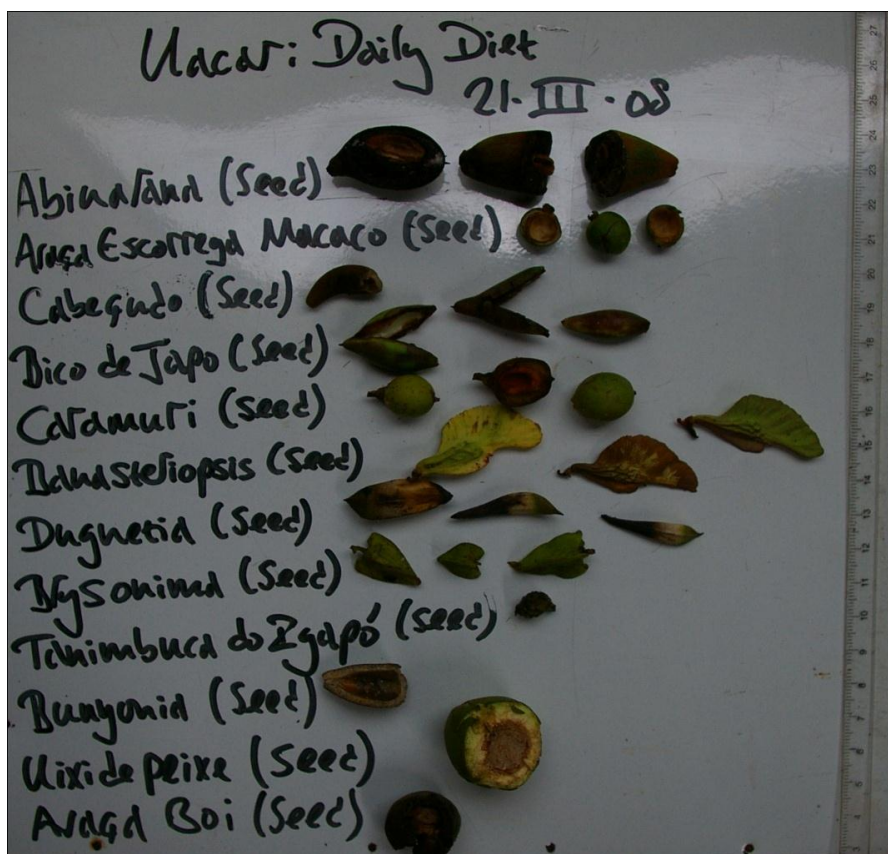 Uacari Daily Diet
21-III-08
Abiurana (Seed)
Araçá Escorrega Macaco (Seed)
Cabeçudo (Seed)
Bico de Japo (Seed)
Caramuri (Seed)
Banasteriopsis (Seed)
Duguetia (Seed)
Brysonima (Seed)
Tanimbuca do Igapó (Seed)
Bunyonia (Seed)
Uixi de peixe (Seed)
Araçá Boi (Seed)
27
26
25
24
23
22
21
20
19
18
17
16
15
14
13
12
11
10
9
8
7
6
5
4
3